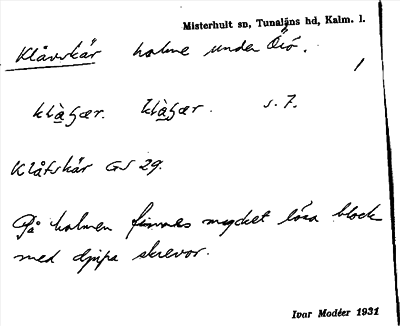 Misterhult sn, Tunaläns hd, Kalm. l.
Klåvskär holme under Örö.
/
klàʃær. klàʃær. s. 7.
Klåfskär GS 29.
På holmen finnes mycket lösa block
med djupa skrevor.
Ivar Modéer 1931